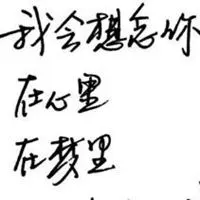 我会想念你
在心里
在梦里